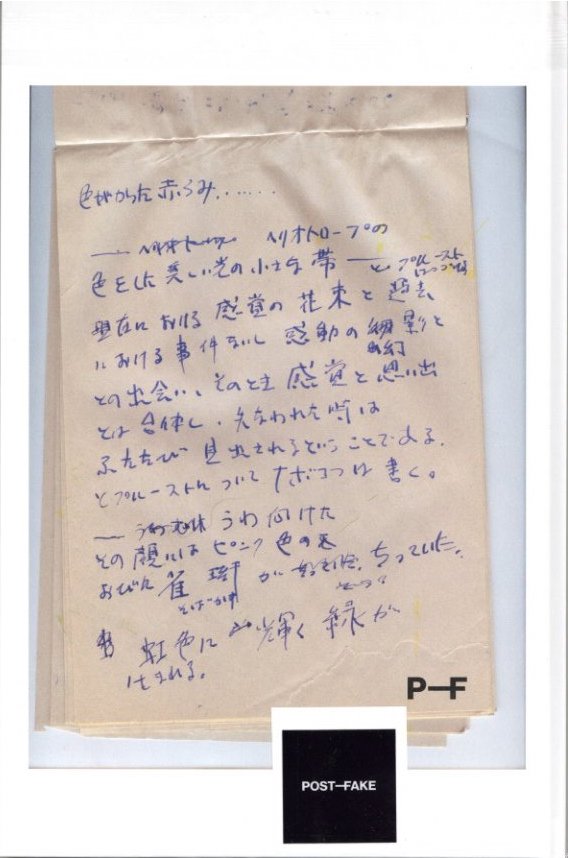 色がかった赤らみ.......
── ヘリオトロープの
色をした美しい光の小さな帯 ── と、プルースト
現在における感覚の花束と過去
における事件ないし感動の 影と
との出会い、そのとき感覚と思い出
とは合体し、失なわれた時は
ふたたび見出されるということである。
とプルーストについてナボコフは書く。
── うわ向けた
その顔にはピンク色の
おびた雀斑が 、ちっていた。
そばかす
虹色に輝く緑が
生まれる。
P—F
POST—FAKE